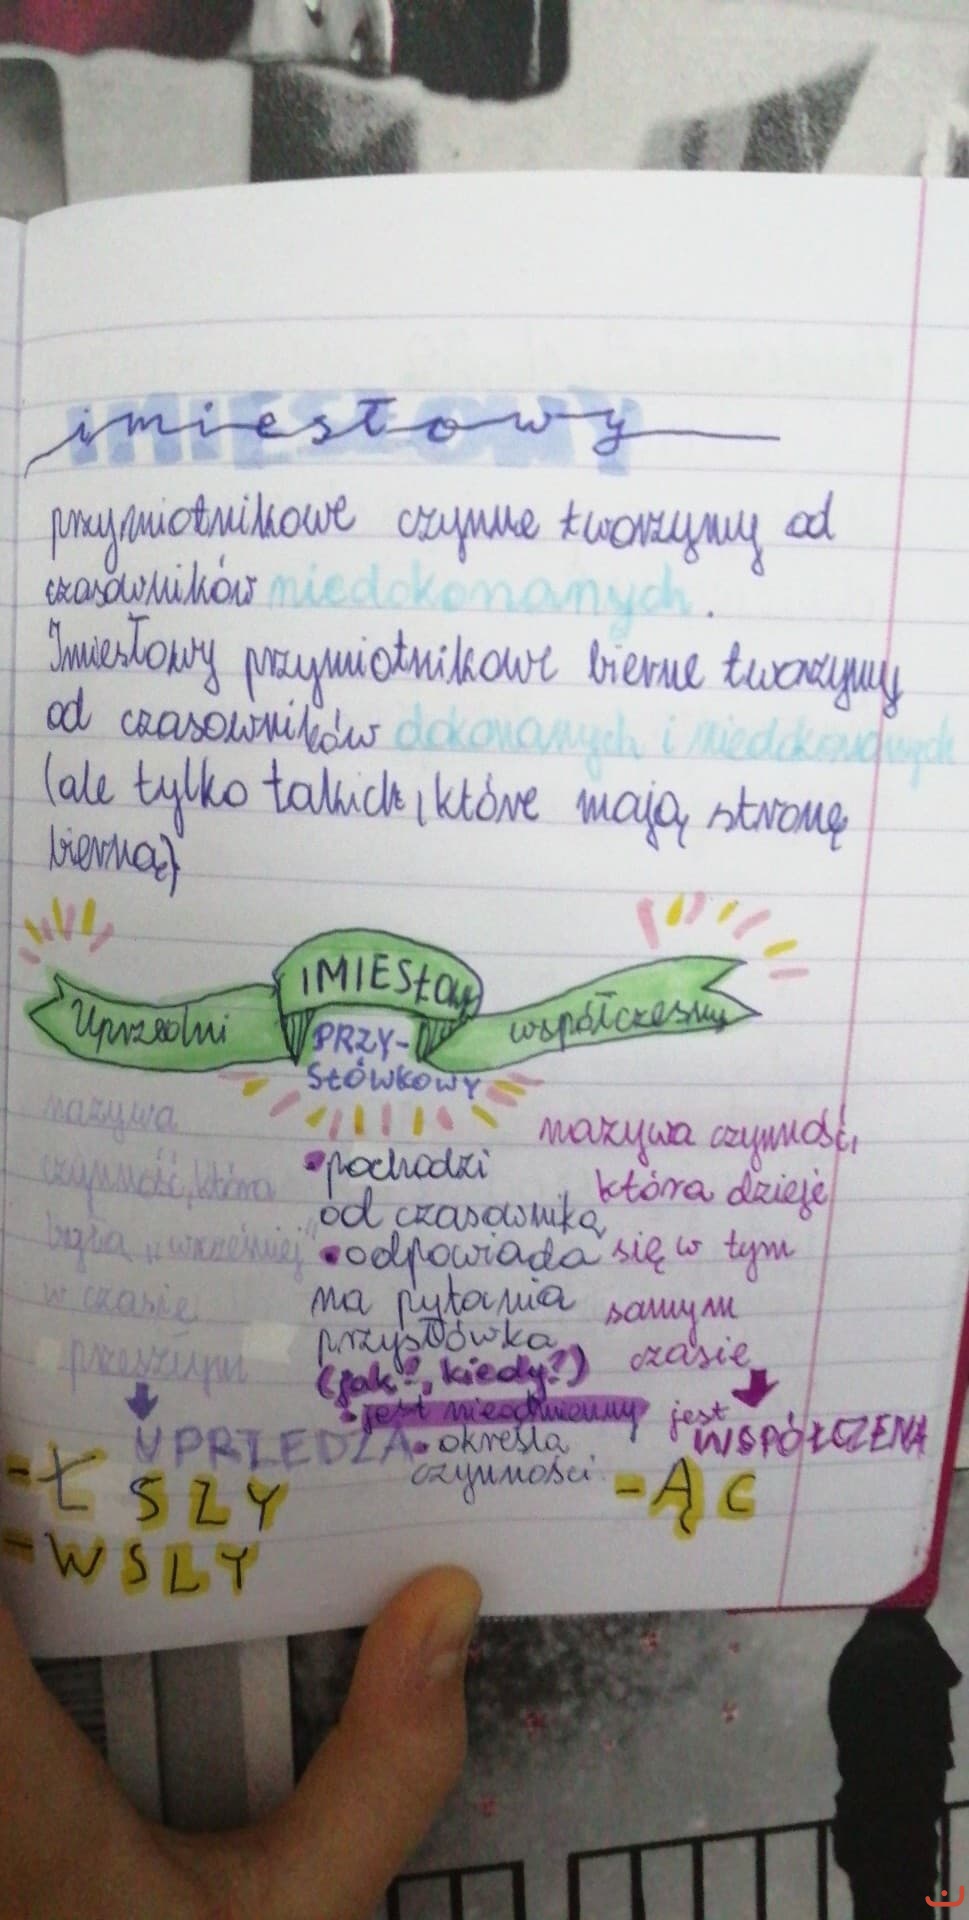 imiesłowy
przymiotnikowe czynne tworzymy od
czasowników niedokonanych.
Imiesłowy przymiotnikowe bierne tworzymy
od czasowników dokonanych i niedokonanych
(ale tylko takich, które mają stronę
bierną)
IMIESŁOWY
Uprzedni
PRZY-
SŁÓWKOWY
współczesny
nazywa
czynność, która
była „wcześniej"
w czasie
przeszłym
UPRZEDZA
-ŁSZY
-WSZY
• pochodzi
od czasownika
• odpowiada
na pytania
przysłówka
(jak?, kiedy?)
• jest nieodmienny
• określa
czynności
nazywa czynność,
która dzieje
się w tym
samym
czasie
jest
WSPÓŁCZENA
-ĄC